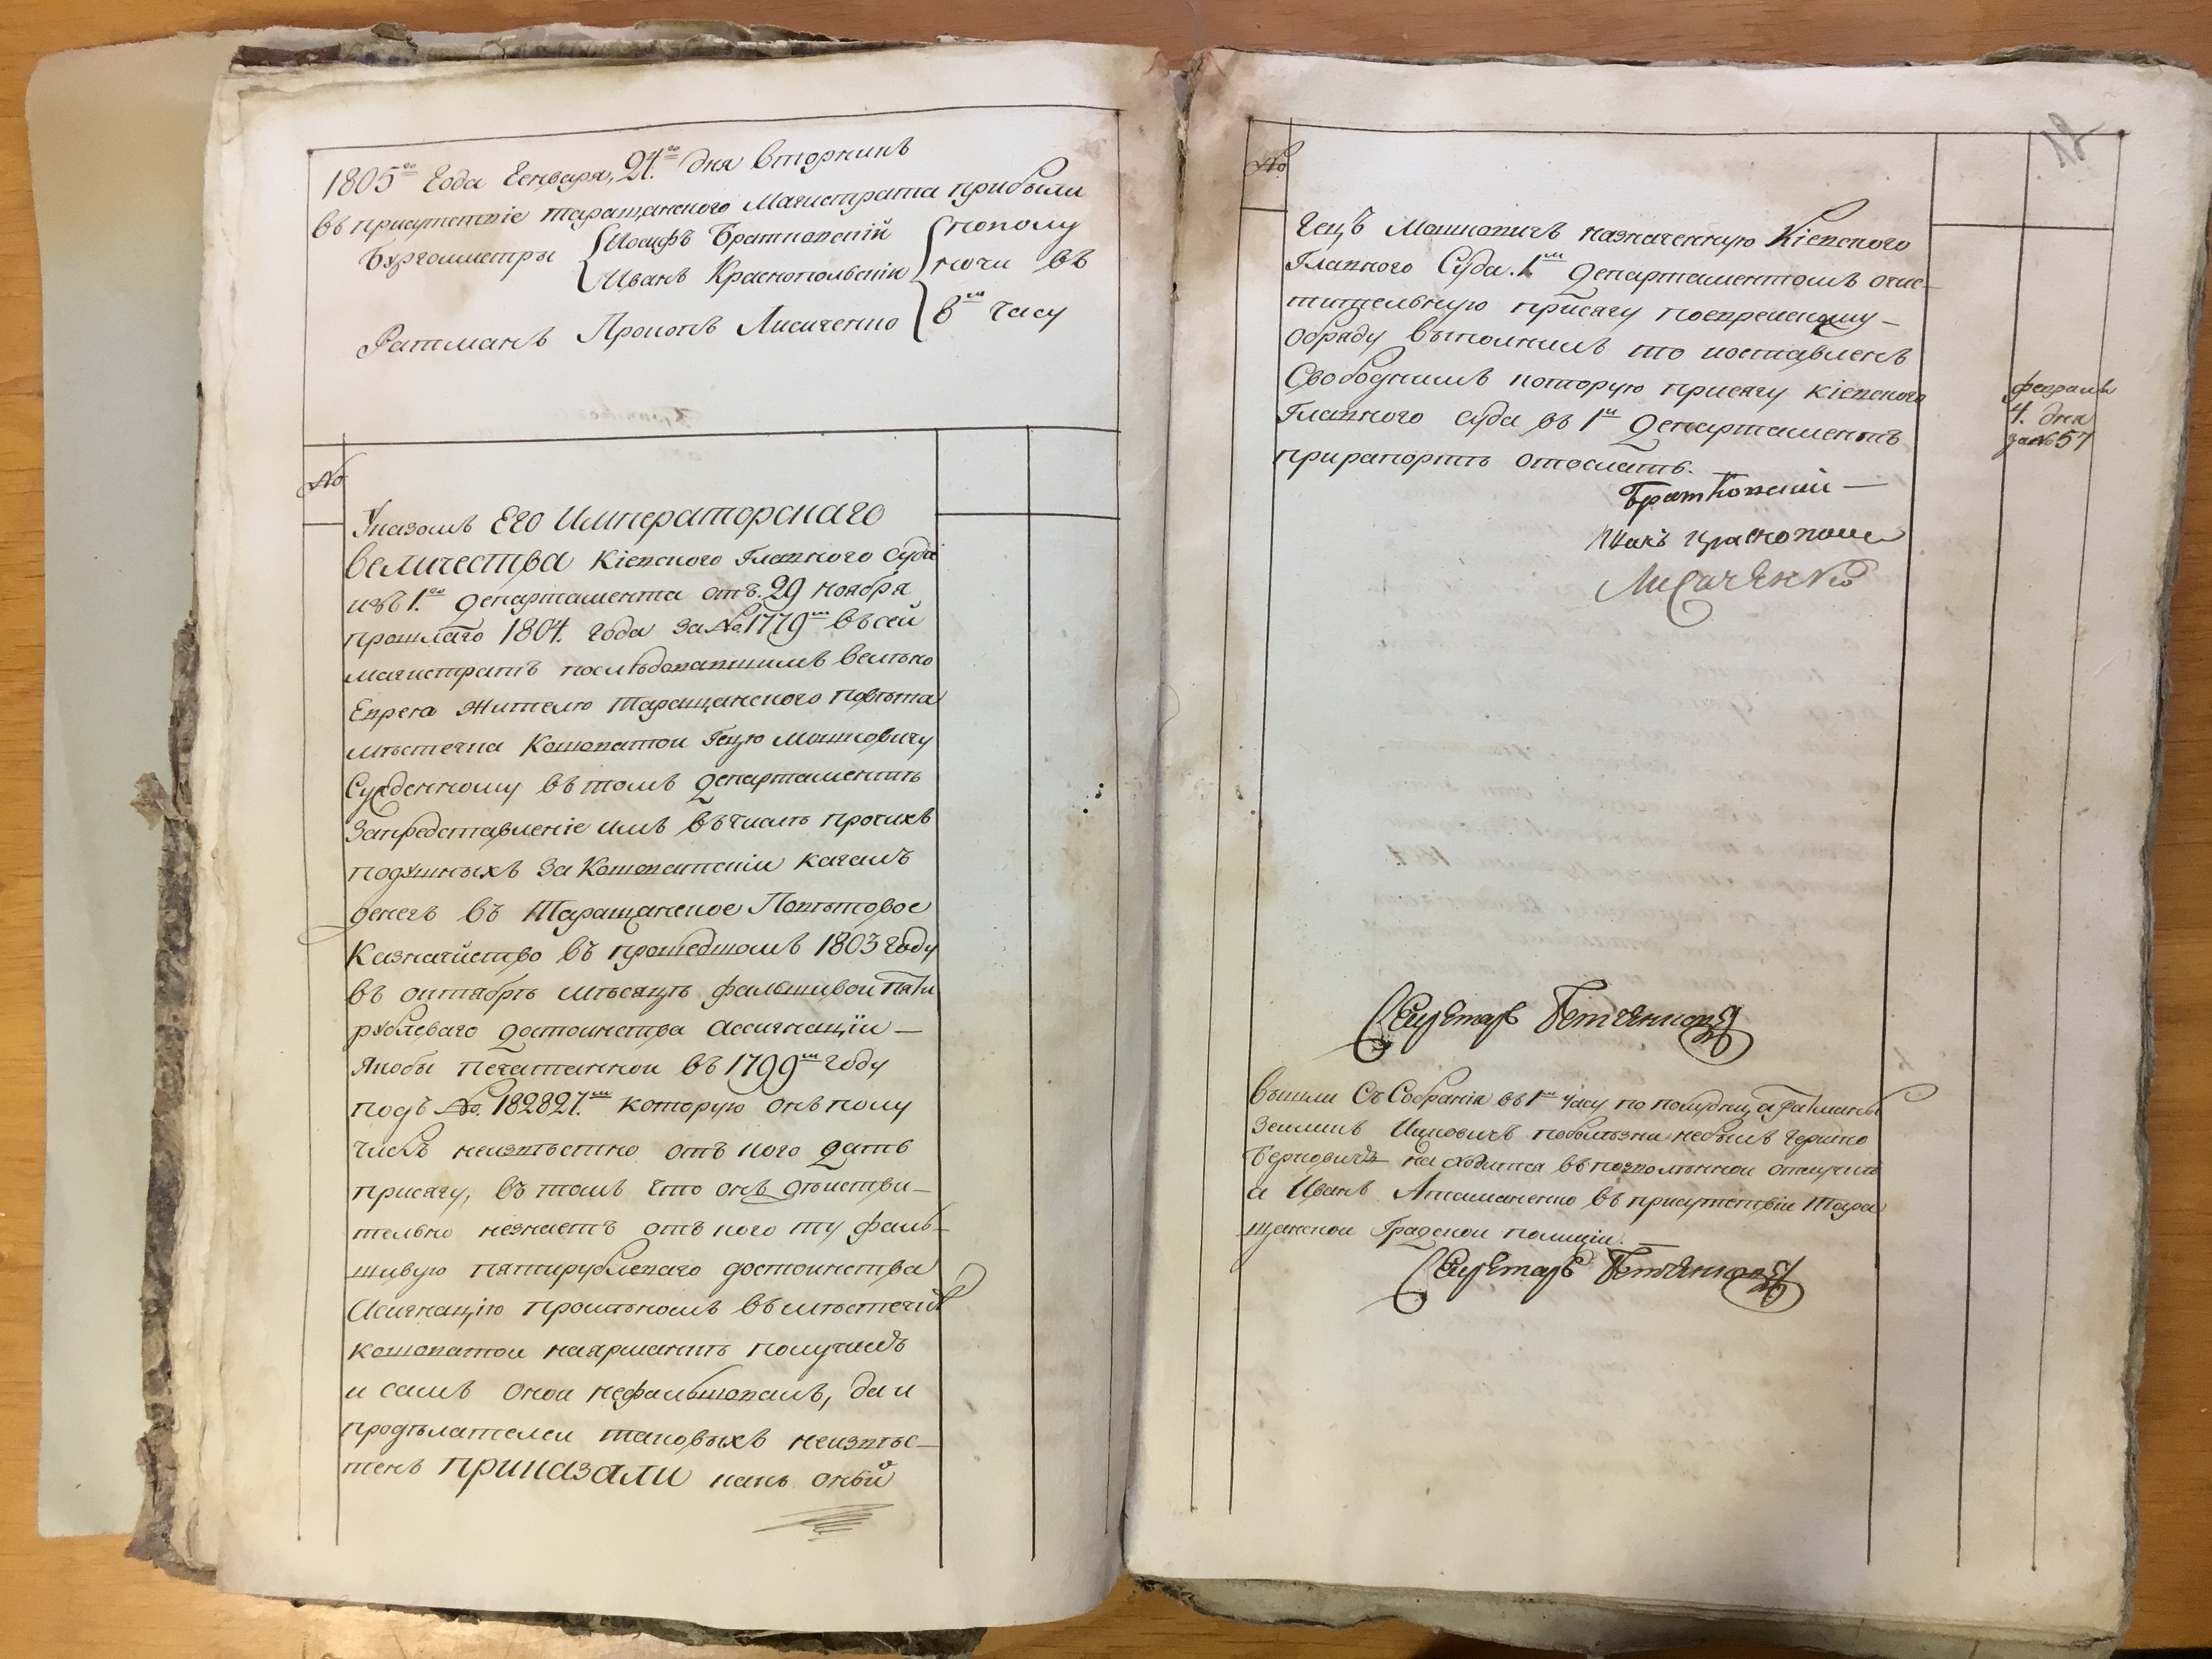 1805го Года Генваря, 24.го дня вторникъ
въ присутствіе таращанского Магистрата прибыли
Бургомистры
Иосифъ Братковскій
Иванъ Краснопольскій
пополу
ночи въ
8м часу
Ратманъ Прокопъ Лисиченко
№
Указомъ Его Императорскаго
величества Кіевского Главного Суда
изъ 1.го Департамента отъ. 29 ноября
прошлаго 1804. года за №. 1779м въ сей
магистратъ последовавшимъ велѣно
Еврея жителю таращанского повѣта
мѣстечка Кошоватои Гецю Мошковичу
Сужденному въ томъ Департаментѣ
Запредставленіе имъ въ числѣ протихъ
подушныхъ за Кошоватскіи кагалъ
денегъ въ Таращанское Повѣтовое
Казначейство въ прошедшомъ 1803 году
въ октябрѣ мѣсяцѣ фальшивой пяти
рублеваго достоинства Ассигнаціи —
якобы печатаннои въ 1799м году
подъ №. 182827.м которую онъ полу
чилъ неизвѣстно отъ кого дать
присягу, въ томъ что онъ дѣистви-
тельно незнаетъ отъ кого ту фаль-
шивую пятирублеваго достоинства
Асигнацію промѣномъ въ мѣстечкѣ
кошоватои наярманкѣ получилъ
и самъ онои нефальшовалъ, да и
продѣлателеи таковыхъ неизвѣс-
тенъ приказали какъ оный
№
12
Гецъ Мошковичъ назначенную Кіевского
Главного Суда. 1м Департаментомъ очис-
тительную присягу поеврейскому-
обряду выполнилъ то поставленъ
Свободнимъ которую присягу кіевского
Главного суда въ 1й Департаментъ
прирапортѣ отослать.
февраля
4. дня
за№57
Братковскій —
Иванъ Краснополс
Лисиченко
Секретарь
вышли Съ Собранія въ 1м часу по полудни, а ратманы
Зелманъ Ицковичъ поболѣзни небылъ Гершко
Берковичъ находится въ позволѣннои отлучкѣ
а Иванъ Атаманенко въ присутствіи Тара
щанскои Градскои полиціи. —
Секретарь